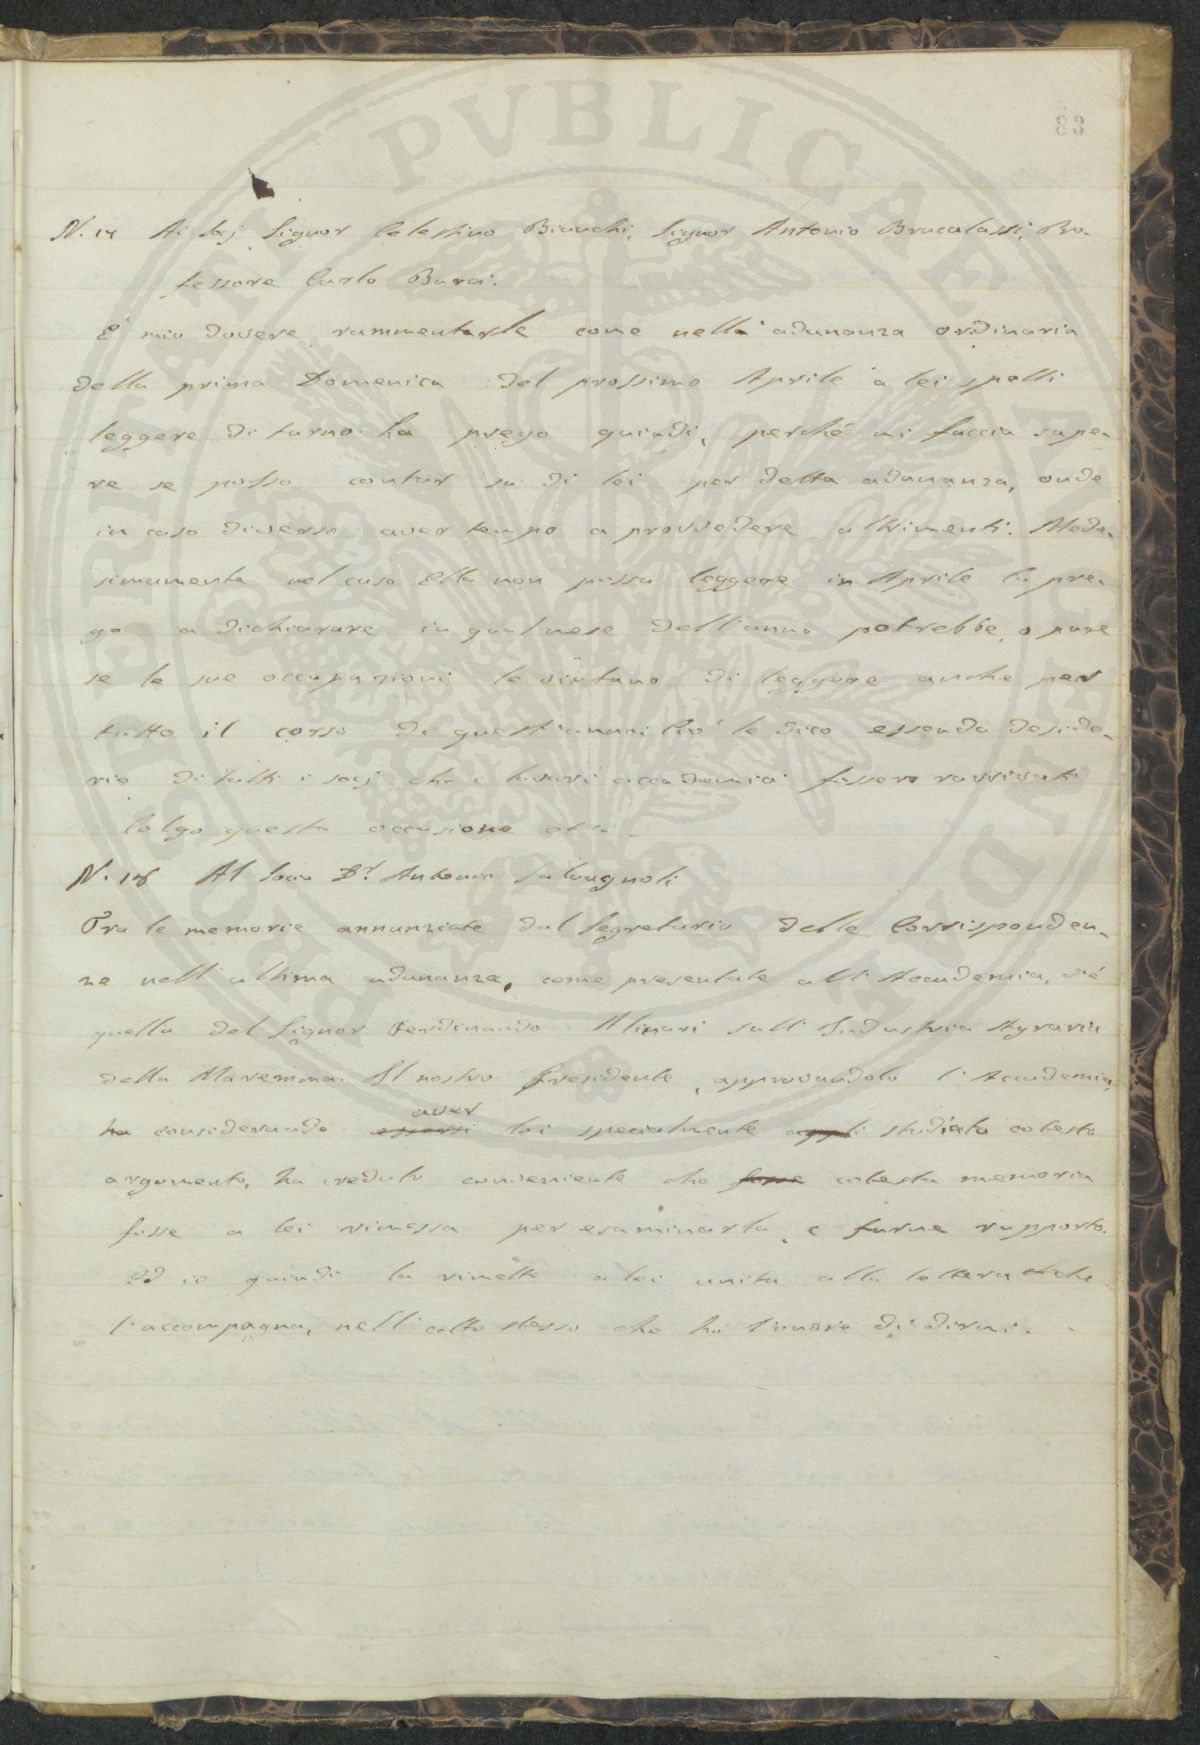 83
N. 17 Ai Socj Signor Celestino Bianchi, Signor Antonio Brucalassi, Pro-
fessore Carlo Burci.
E' mio dovere rammentarle come nella adunanza ordinaria
della prima Domenica del prossimo Aprile a lei spetti
leggere di turno. La prego quindi, perché mi faccia sape-
re se posso contar su di lei per detta adunanza, onde
in caso diverso aver tempo a provvedere altrimenti. Mede-
simamente nel caso Ella non possa leggere in Aprile la pre-
go a dichiarare in qual mese dell'anno potrebbe, o pure
se le sue occupazioni le vietano di leggere anche per
tutto il corso di quest'anno. Ciò le dico essendo deside-
rio di tutti i socj che i lavori accademici fossero ravvivati
Colgo questa occasione etc.
N. 18 Al Socio Dr. Antonio Salvagnoli
Tra le memorie annunziate dal Segretario delle Corrisponden-
ze nell'ultima adunanza, come presentate all'Accademia, vi è
quella del Signor Ferdinando Alinari sull'Industria Agraria
della Maremma. Il nostro Presidente, approvandolo l'Accademia,
aver
ha considerando essersi lei specialmente appli studiato cotesto
argomento, ha creduto conveniente che fosse cotesta memoria
fosse a lei rimessa per esaminarla, e farne rapporto.
Ed io quindi la rimetto a lei unita alla lettera che
l'accompagna, nell'atto stesso che ho l'onore di dirmi.
PVBLICAE